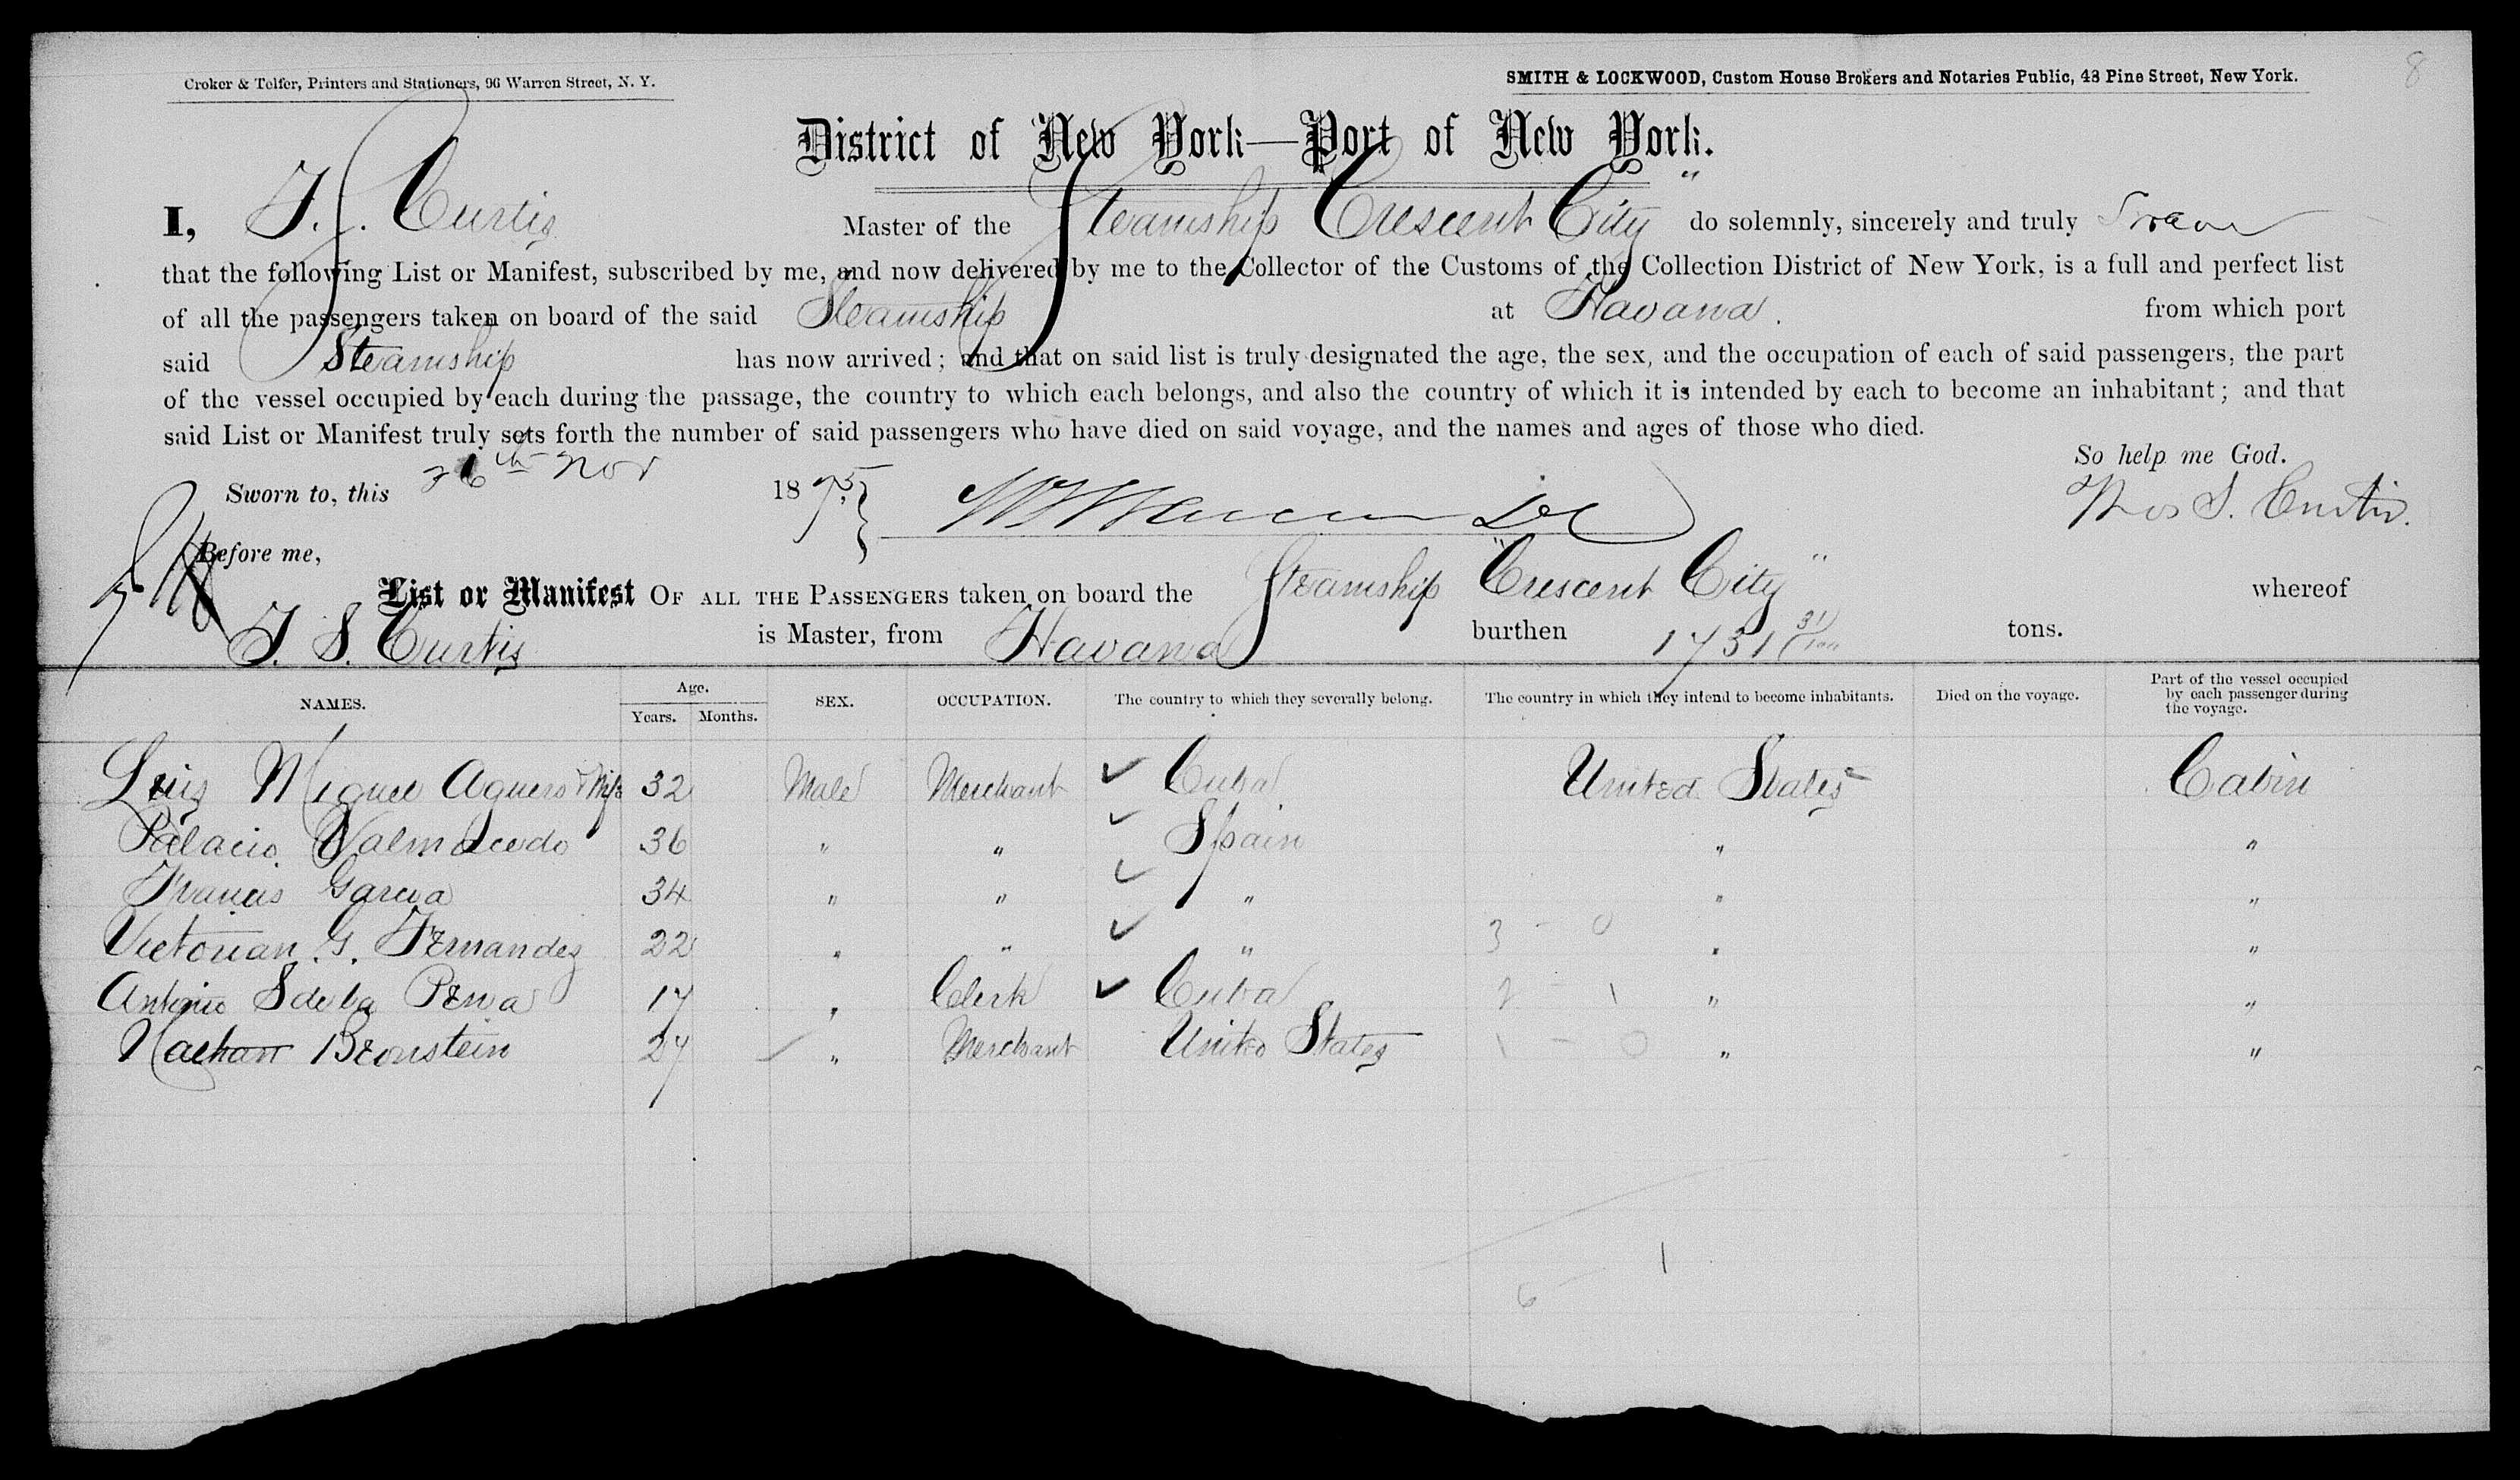 8
Croker & Telfer, Printers and Stationers, 96 Warren Street, N. Y.
SMITH & LOCKWOOD, Custom House Brokers and Notaries Public, 43 Pine Street, New York.
District of New York—Port of New York.
I, T. S. Curtis Master of the Steamship "Crescent City" do solemnly, sincerely and truly Swear
that the following List or Manifest, subscribed by me, and now delivered by me to the Collector of the Customs of the Collection District of New York, is a full and perfect list
of all the passengers taken on board of the said Steamship at Havana. from which port
said Steamship has now arrived; and that on said list is truly designated the age, the sex, and the occupation of each of said passengers, the part
of the vessel occupied by each during the passage, the country to which each belongs, and also the country of which it is intended by each to become an inhabitant; and that
said List or Manifest truly sets forth the number of said passengers who have died on said voyage, and the names and ages of those who died.
So help me God.
Sworn to, this 26th Nov 1875 Thos S. Curtis.
Before me,
List or Manifest OF ALL THE PASSENGERS taken on board the Steamship "Crescent City" whereof
T. S. Curtis is Master, from Havana burthen 1731 31/100 tons.
NAMES. Age. Years. Months. SEX. OCCUPATION. The country to which they severally belong. The country in which they intend to become inhabitants. Died on the voyage. Part of the vessel occupied by each passenger during the voyage.
Luis Miguel Aguero & Wife 32 Male Merchant ✓ Cuba United States Cabin
Palacio Valmacedo 36 " " ✓ Spain " "
Francis Garcia 34 " " ✓ " " "
Victorian G. Fernandez 22 " " ✓ " 3 - 0 " "
Antonio S de la Pena 17 " Clerk ✓ Cuba 2 - 1 " "
Nathan Bronstein 27 " Merchant United States 1 - 0 " "
6 1